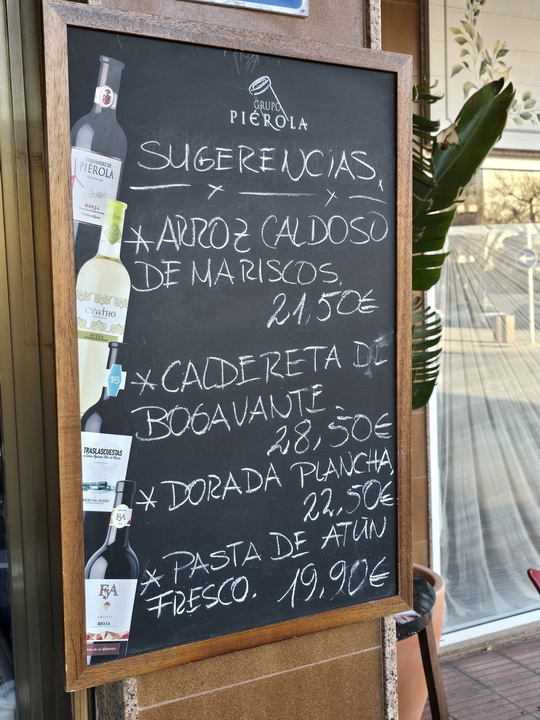 GRUPO
PIÉROLA
SUGERENCIAS.
* ARROZ CALDOSO
DE MARISCOS.
21,50€
* CALDERETA DE
BOGAVANTE
28,50€
* DORADA PLANCHA
22,50€
* PASTA DE ATÚN
FRESCO. 19,90€
FERNÁNDEZ DE
PIÉROLA
RIOJA
CYATHO
16
TRASLASCUESTAS
FJA
FJA
RIOJA